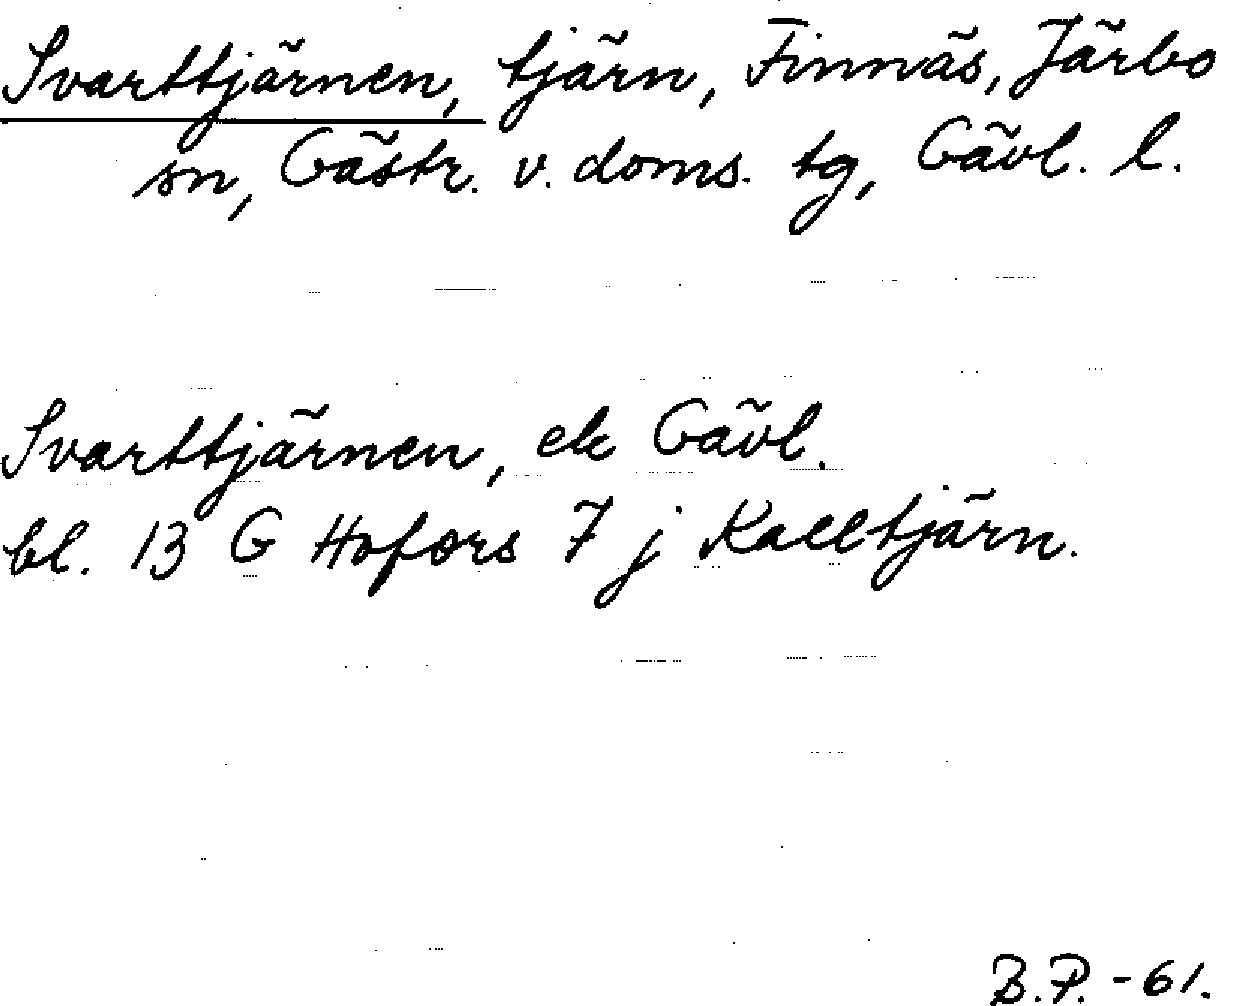 Svarttjärnen, tjärn, Finnäs, Järbo
sn, Gästr. v. doms. tg, Gävl. l.
Svarttjärnen, ek Gävl.
bl. 13 G Hofors 7 j Kalltjärn.
B.P. -61.